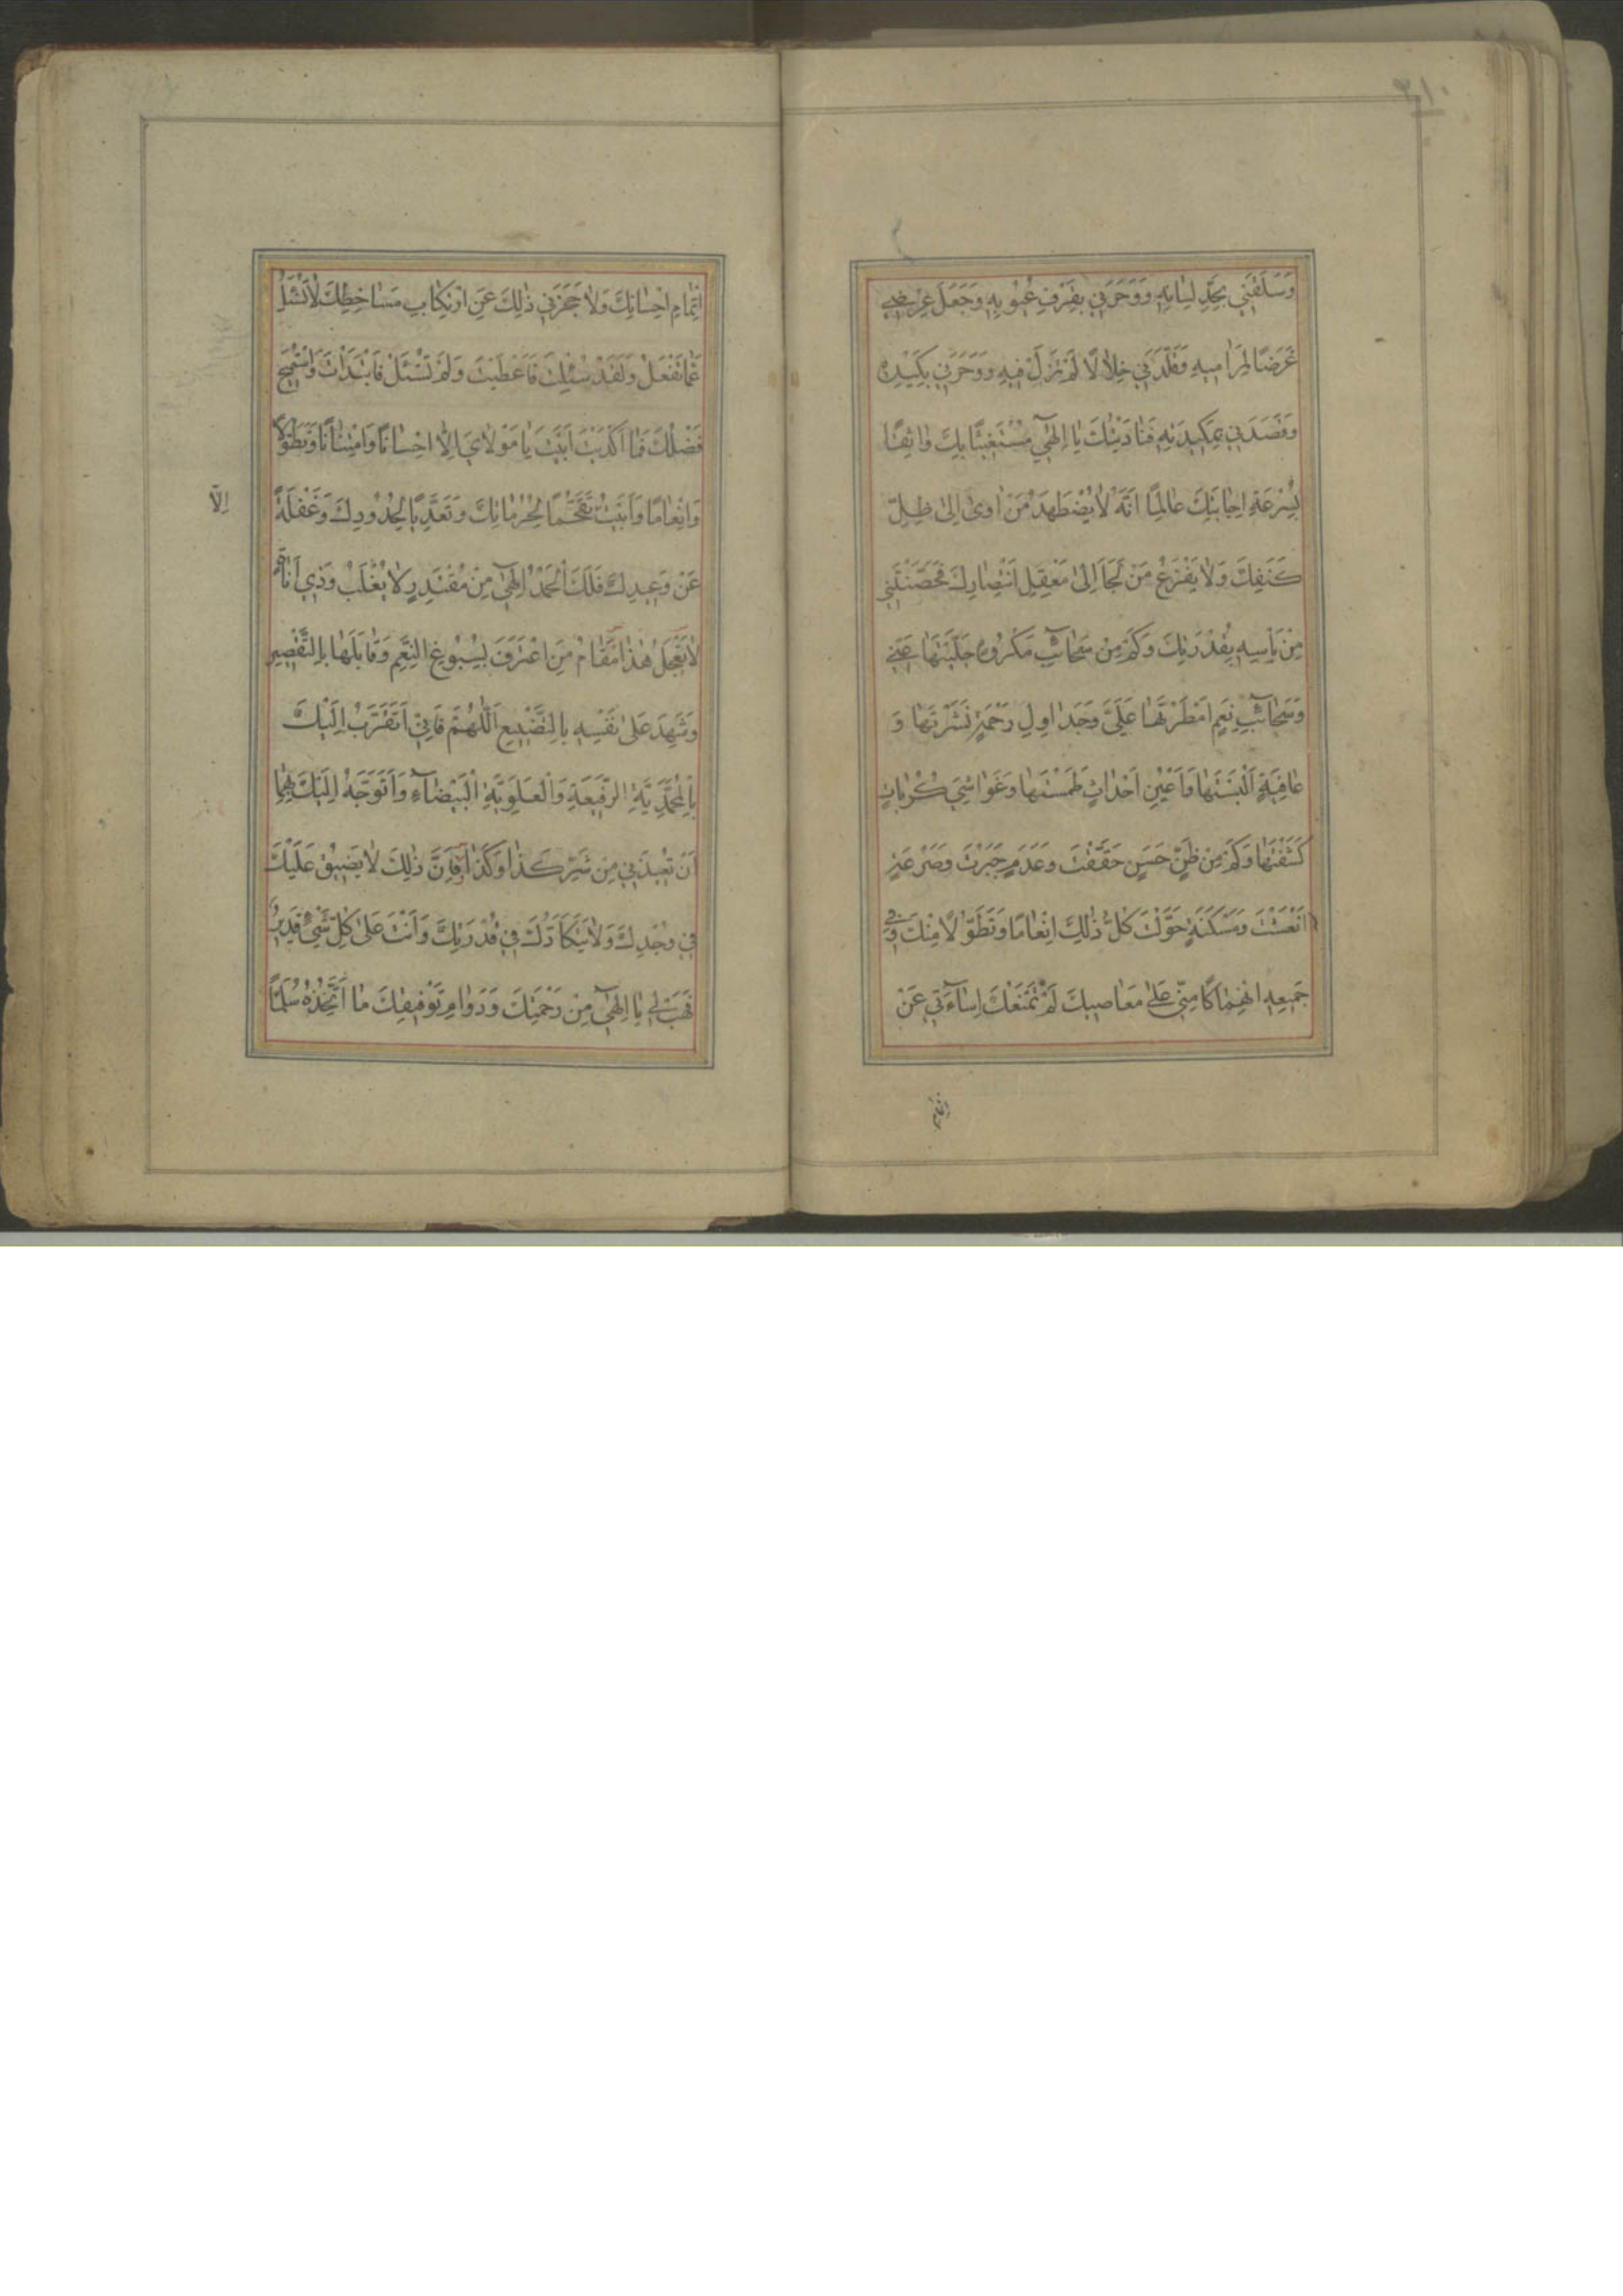 ٣١٠
وَسَلَقَنِي بِحَدِّ لِسَانِهِ وَوَحَرَنِي بِقَرْفِ عُيُوبِهِ وَجَعَلَ عِرْضِي
غَرَضًا لِمَرَامِيهِ وَقَلَّدَنِي خِلَالًا لَمْ تَزَلْ فِيهِ وَوَحَرَنِي بِكَيْدِهِ
وَقَصَدَنِي بِمَكِيدَتِهِ فَنَادَيْتُكَ يَا اِلٰهِي مُسْتَغِيثًا بِكَ وَاثِقًا
بِسُرْعَةِ اِجَابَتِكَ عَالِمًا اَنَّهُ لَا يُضْطَهَدُ مَنْ اَوىٰ اِلىٰ ظِلِّ
كَنَفِكَ وَلَا يَفْزَعُ مَنْ لَجَاَ اِلىٰ مَعْقِلِ انْتِصَارِكَ فَحَصَّنْتَنِي
مِنْ بَاْسِهِ بِقُدْرَتِكَ وَكَمْ مِنْ سَحَائِبِ مَكْرُوهٍ جَلَّيْتَهَا عَنِّي
وَسَحَائِبِ نِعَمٍ اَمْطَرْتَهَا عَلَيَّ وَجَدَاوِلِ رَحْمَةٍ نَشَرْتَهَا وَ
عَافِيَةٍ اَلْبَسْتَهَا وَاَعْيُنِ اَحْدَاثٍ طَمَسْتَهَا وَغَوَاشِيَ كُرُبَاتٍ
كَشَفْتَهَا وَكَمْ مِنْ ظَنٍّ حَسَنٍ حَقَّقْتَ وَعَدَمٍ جَبَرْتَ وَصَرْعَةٍ
اَنْعَشْتَ وَمَسْكَنَةٍ حَوَّلْتَ كُلُّ ذٰلِكَ اِنْعَامًا وَتَطَوُّلًا مِنْكَ وَفِي
جَمِيعِهِ انْهِمَاكًا مِنِّي عَلىٰ مَعَاصِيكَ لَمْ تَمْنَعْكَ اِسَاءَتِي عَنْ
اِتْمَامِ اِحْسَانِكَ وَلَا حَجَزَنِي ذٰلِكَ عَنِ ارْتِكَابِ مَسَاخِطِكَ لَا تُسْئَلُ
عَمَّا تَفْعَلُ وَلَقَدْ سُئِلْتَ فَاَعْطَيْتَ وَلَمْ تُسْئَلْ فَابْتَدَأْتَ وَاسْتُمِيحَ
فَضْلُكَ فَمَا اَكْدَيْتَ اَبَيْتَ يَا مَوْلَايَ اِلَّا اِحْسَانًا وَامْتِنَانًا وَتَطَوُّلًا
وَاِنْعَامًا وَاَبَيْتُ تَقَحُّمًا لِحُرُمَاتِكَ وَتَعَدِّيًا لِحُدُودِكَ وَغَفْلَةً
اِلَّا
عَنْ وَعِيدِكَ فَلَكَ الْحَمْدُ اِلٰهِي مِنْ مُقْتَدِرٍ لَا يُغْلَبُ وَذِي اَنَاةٍ
لَا تَعْجَلُ هٰذَا مَقَامُ مَنِ اعْتَرَفَ بِسُبُوغِ النِّعَمِ وَقَابَلَهَا بِالتَّقْصِيرِ
وَشَهِدَ عَلىٰ نَفْسِهِ بِالتَّضْيِيعِ اَللّٰهُمَّ فَاِنِّي اَتَقَرَّبُ اِلَيْكَ
بِالْمُحَمَّدِيَّةِ الرَّفِيعَةِ وَالْعَلَوِيَّةِ الْبَيْضَاءِ وَاَتَوَجَّهُ اِلَيْكَ بِهِمَا
اَنْ تُعِيذَنِي مِنْ شَرِّ كَذَا وَكَذَا فَاِنَّ ذٰلِكَ لَا يَضِيقُ عَلَيْكَ
فِي وُجْدِكَ وَلَا يَتَكَاَّدُكَ فِي قُدْرَتِكَ وَاَنْتَ عَلىٰ كُلِّ شَيْءٍ قَدِيرٌ
فَهَبْ لِي يَا اِلٰهِي مِنْ رَحْمَتِكَ وَدَوَامِ تَوْفِيقِكَ مَا اَتَّخِذُهُ سُلَّمًا